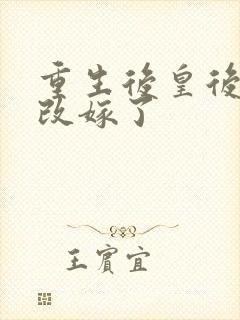 重生後皇後
改嫁了
王賓宜